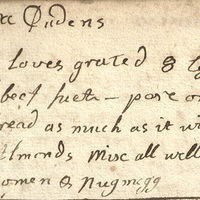 Pudens
loves grated 8
beef suett - pore
read as much as it wi
Almonds mixe all well
&  Nugmegg